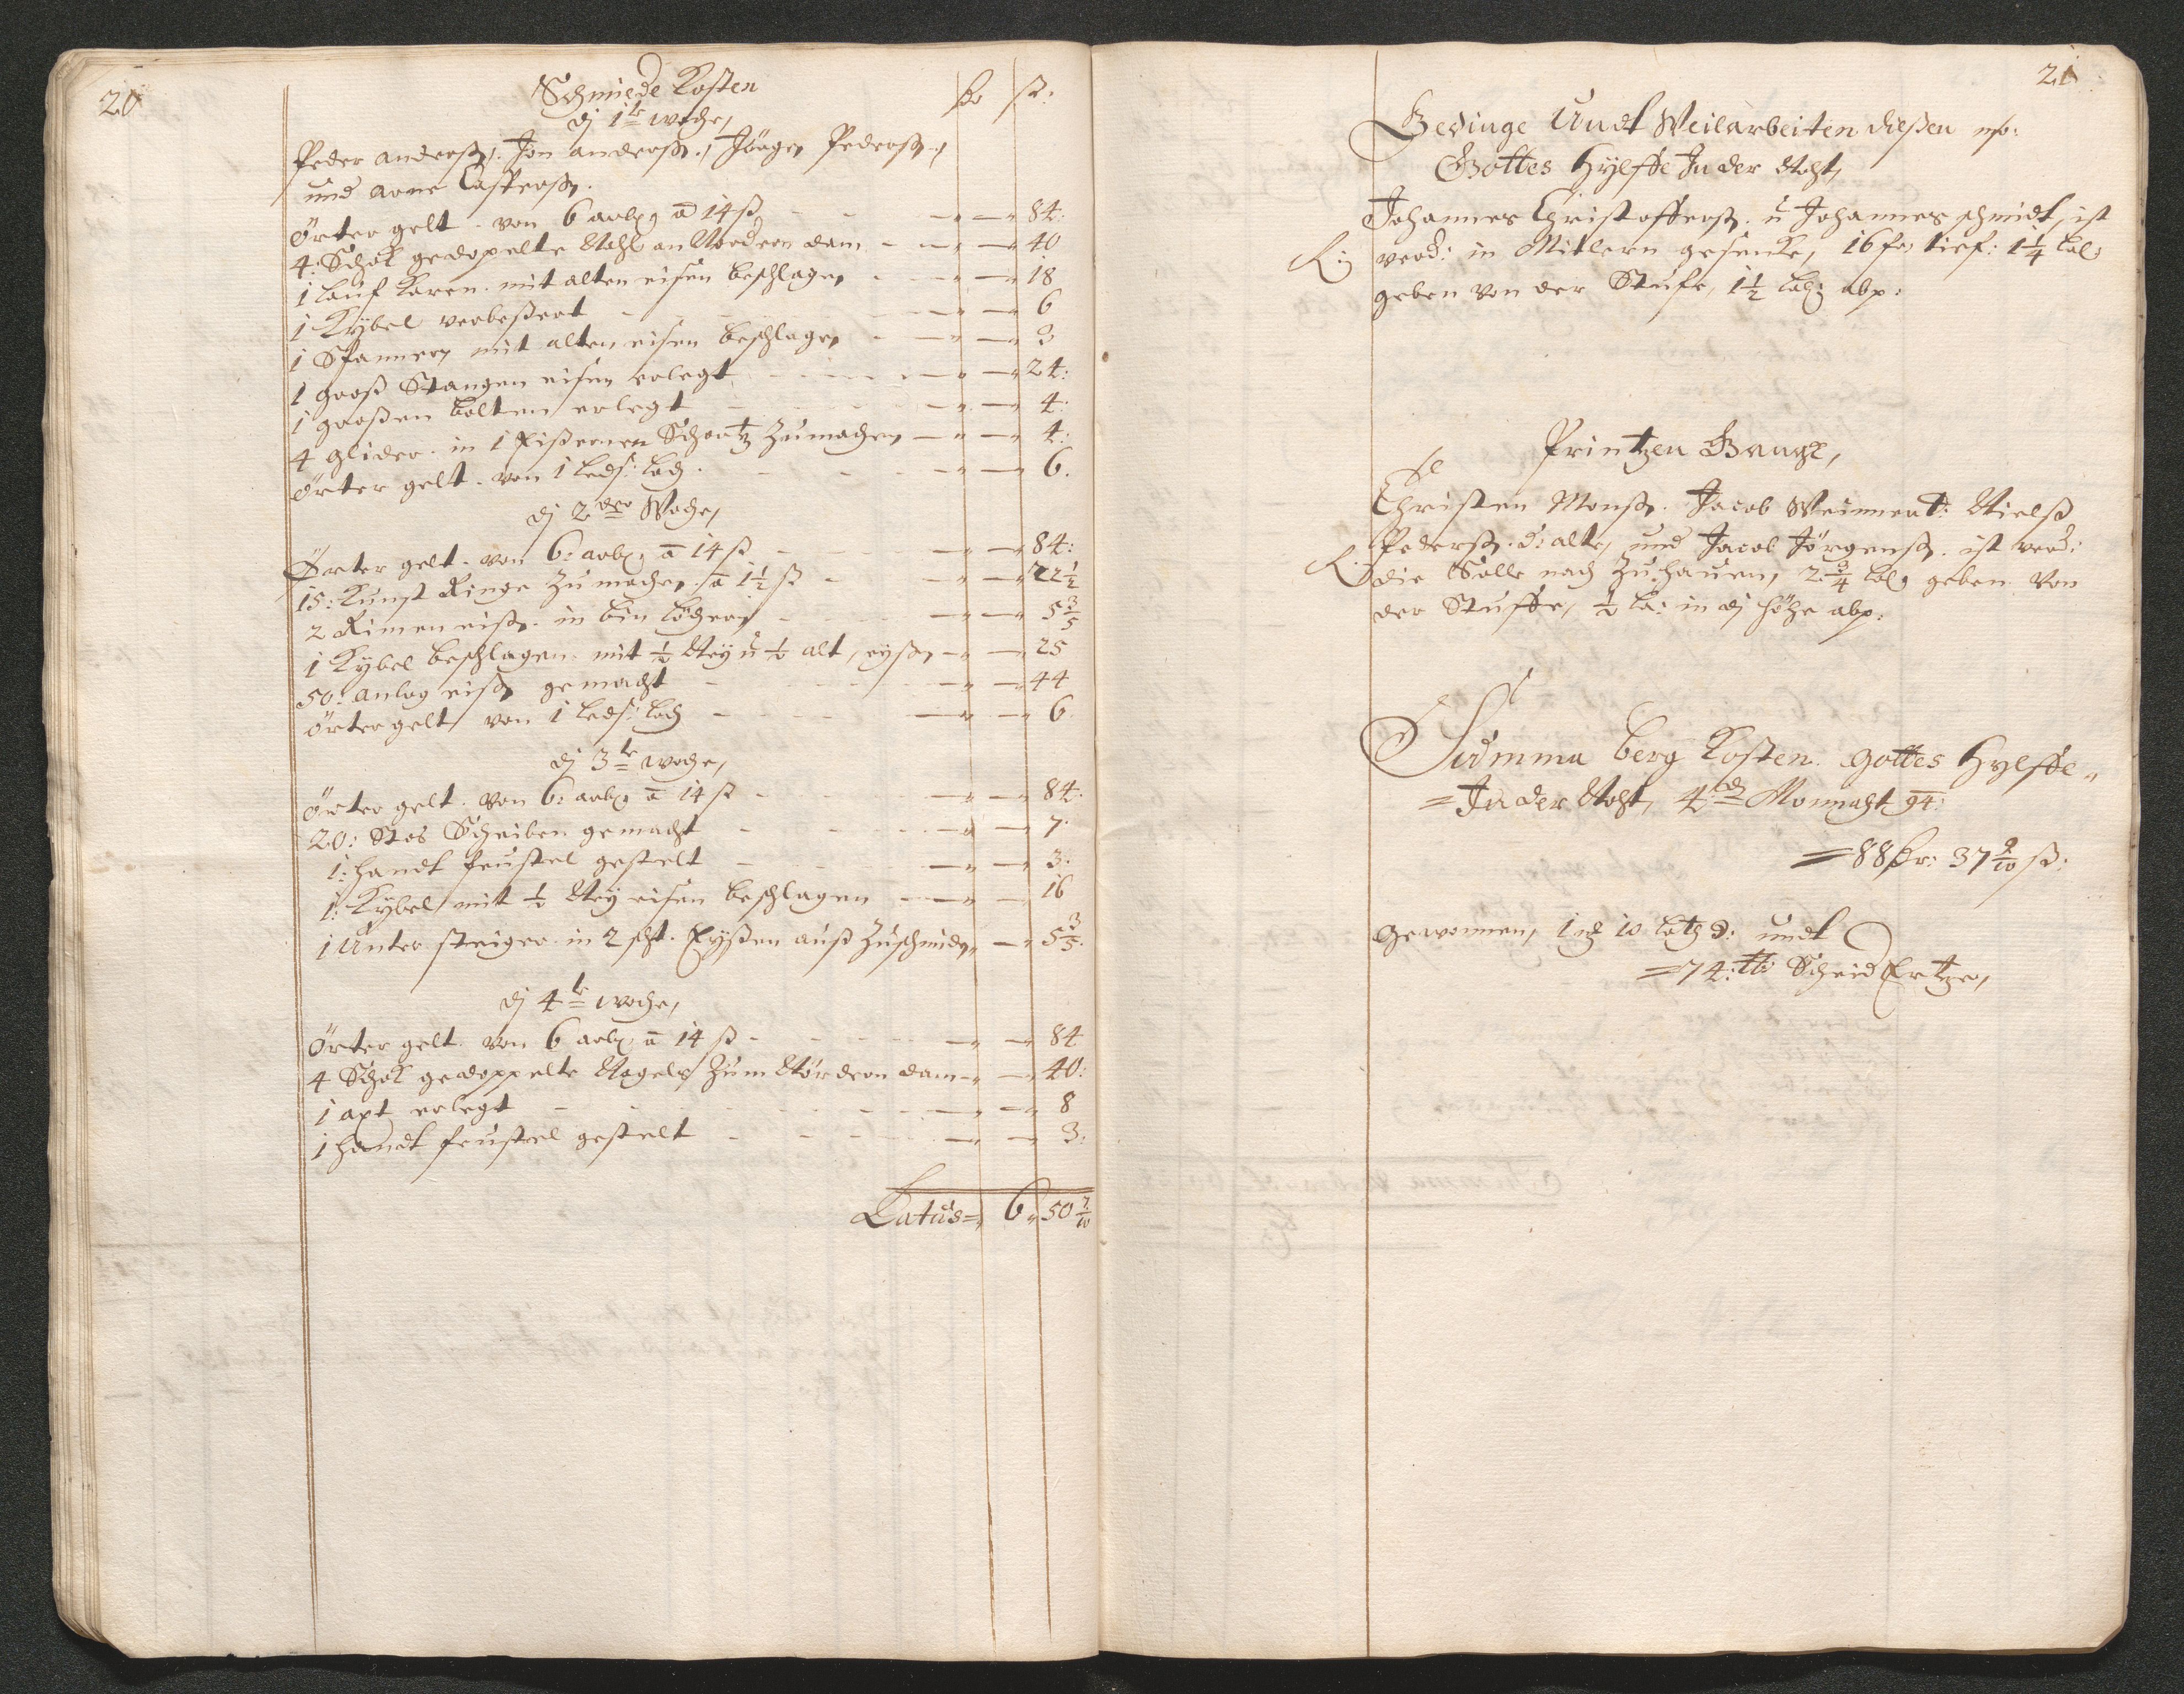 20
Schmiede Kosten
dj 1te woche,
Peder anderß, Jon anderß, Jörgen Pederß,
und arne Casperß.
Örter gelt von 6 arb: a 14 ß 84:
4: Schok gedopelte Nehl an Nordren dam 40
1 lauf karen mit alten eisen beschlagen 18
1 Kÿbel verbeßert 6
1 Spanner mit alten eisen beschlagen 3
1 groß Stangen eisen erlegt 24:
1 großen bolten erlegt 4:
4 glider in 1 Eißernen Zumachen 4:
örter gelt von 1 leds: 6.
dj 2der Woche,
Örter gelt von 6: arb: a 14 ß 84:
15: Kunst Ringe Zumachen a 1½ ß 22½
2 Rimen eiß in 5 3/5
1 Kÿbel beschlagen mit ½ Neÿ ü ½ alt, eÿß 25
50: anlag eiß gemacht 44
örter gelt von 1 leds: 6
dj 3te woche,
örter gelt von 6: arb: a 14 ß 84.
20: Stos Scheiben gemacht 7.
1: handt feustel gestelt 3:
1: Kÿbel mit ½ Neÿ eisen beschlagen 16
1 Unter steiger in 2 Eÿßen auß Zuschmid 5 3/5.
dj 4te woche,
Örter gelt von 6 arb: a 14 ß 84
4 Schok gedoppelte Nagels Zum Nördren dam 40:
1 axt erlegt 8
1 handt feustel gestelt 3:
Latus 6 50 7/10
21
Gedinge Undt Weilarbeiten dießen mo:
Gottes Hÿlffe In der Noht,
Johannes Christofferß. ü Johannes schmidt, ist
verd: in Mitlern gesenke, 16 tief: 1¼
geben von der Stufe, 1½
Printzen Gangk,
Christen Monß. Jacob Weinnert: Nielß
Pederß. d: alte, und Jacob Jörgenß. ist verd:
die Solle nach Zuhauen, 2¾ geben von
der Stuffe, ½ in dj höhe
Summa berg Kosten gottes Hÿlffe
In der Noht, 4 Monnaht 94:
88 37 9/10 ß:
Gewonnen, 10 undt
74: Scheid Ertzer,